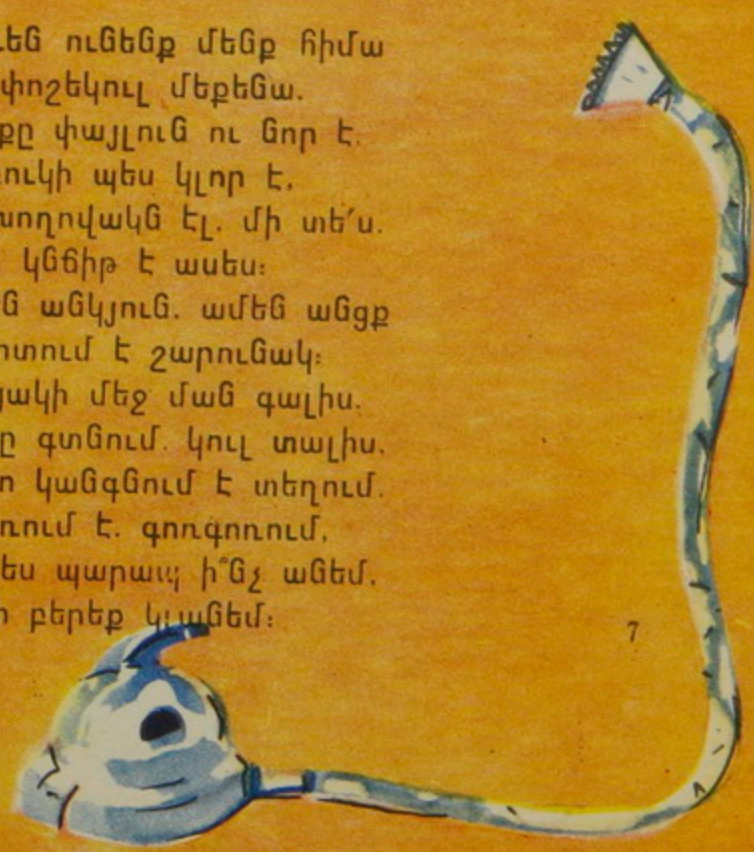 ունենք մենք հիմա
փոշեկուլ մեքենա.
փայլուն ու նոր է.
պես կլոր է,
խողովակն էլ. մի տե՛ս.
կնճիթ է ասես։
անկյուն. ամեն անցք
է շարունակ։
մեջ ման գալիս.
գտնում. կուլ տալիս.
կանգնում է տեղում.
է. գոռգոռում,
պարապ ի՞նչ անեմ.
բերեք կլանեմ։
7